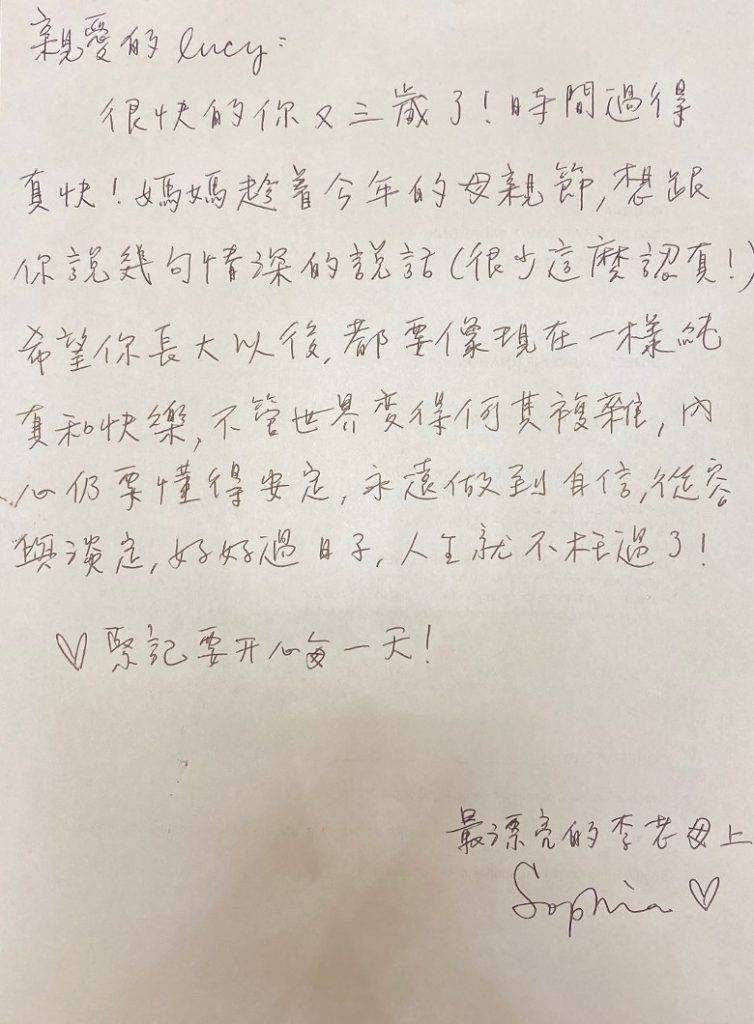 親愛的 lucy：
很快的你又三歲了！時間過得
真快！媽媽趁着今年的母親節,想跟
你說幾句情深的說話(很少這麼認真！)
希望你長大以後,都要像現在一樣純
真和快樂,不管世界变得何其複雜,內
心仍要懂得安定,永遠做到自信,從容
與淡定,好好過日子,人生就不枉過了！
♡緊記要开心每一天！
最漂亮的李老母上
Sophia ♡